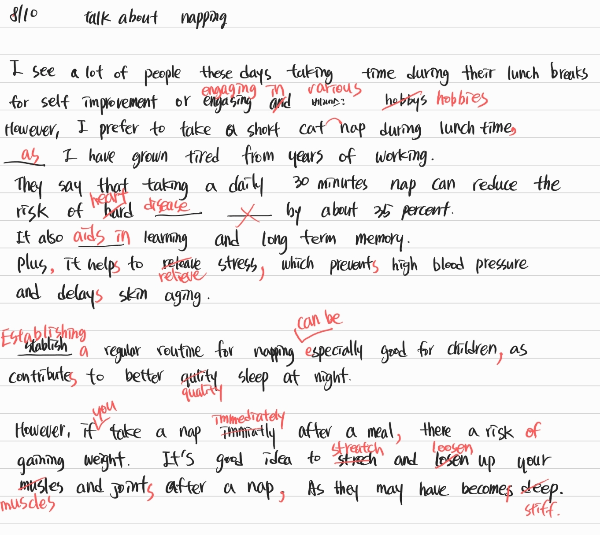 8/10 talk about napping
I see a lot of people these days taking time during their lunch breaks
engaging in various
for self improvement or engasing and hobbys hobbies
However, I prefer to take a short cat nap during lunch time,
as I have grown tired from years of working.
They say that taking a daily 30 minutes nap can reduce the
heart disease
risk of hard by about 35 percent.
It also aids in learning and long term memory.
Plus, it helps to releave stress, which prevents high blood pressure
relieve
and delays skin aging.
can be
Establishing
stablish a regular routine for napping especially good for children, as
contributes to better qutity sleep at night.
quality
you immediately
However, if take a nap immiatly after a meal, there a risk of
streatch loosen
gaining weight. It's good idea to strech and losen up your
musles and joints after a nap, As they may have becomes deep.
muscles stiff.